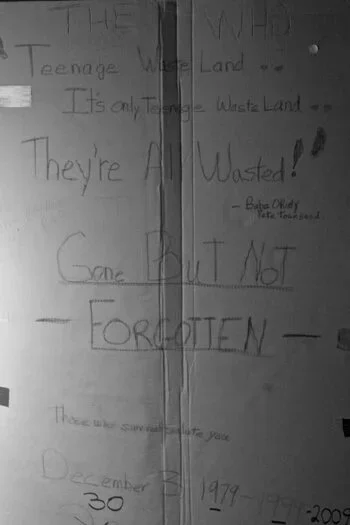 THE WHO
Teenage Waste Land ..
It's only Teenage Waste Land ..
They're All Wasted!"
- Baba O'Riley
Pete Townsend
Gone But Not
- FORGOTTEN -
Those who survived salute you
December 3 1979 - 1999 - 2009
30